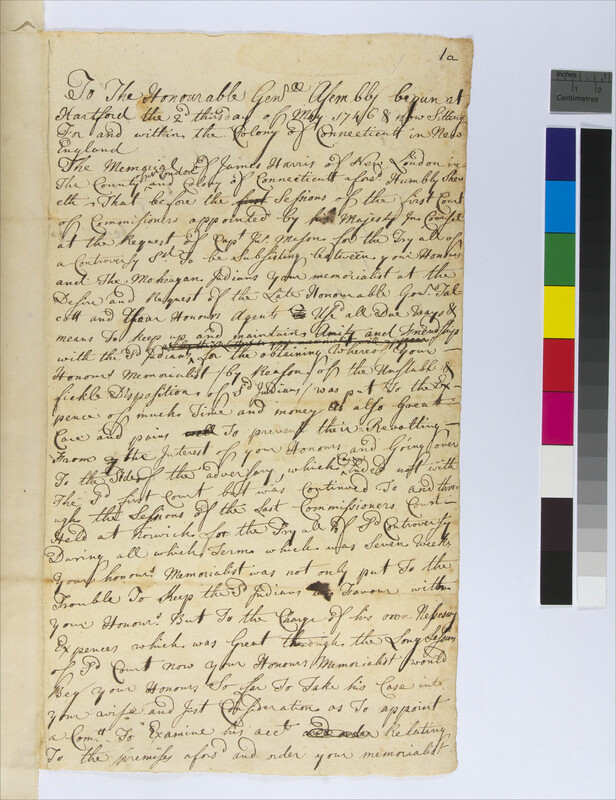 1a
To The Honourable Genll Assembly begun at
Hartford the 2d thirsday of May 1746 & now Sitting
For and within the Colony of Connecticutt in New
England
The Memorial Of James Harris of New London in
The County of New London and Colony of Connecticutt aforsd Humbly Shew
eth - That before the first Sessions of the first Court
of Commissioners appointed by his Majesty In Counsel
at the Request of Capt Jno Masons for the Tryall of
a Controversy Sd To be Subsisting between your Honours
and The Moheagan Indians your memorialist at the
Desire and Request of the Late Honourable Govr Tal
cott and Your Honours Agents To Use all Due Ways &
means To Keep up and maintain Unity and Friendship
with the sd Indians for the obtaining Whereof Your
Honours Memorialist (by Reason of the Unstable &
fickle Disposition of sd Indians) was put To the Ex-
pence of much Time and money as also Great
Care and pains To prevent their Revolting
From the Interest of your Honours and Going over
To the Side of the adversary, which Ended not with
The sd first Court but was Continued To and thro
ugh the Sessions of the Last Commissioners Court
Held at Norwich for the Tryall of sd Controversy
During all which Term which was Seven Weeks
Your honours Memorialist was not only put To the
Trouble To Keep the sd Indians in Favour with
your Honours But To the Charge of his own Nessesary
Expences which was Great through the Long Session
of sd Court now your Honours Memorialist would
Beg your Honours So far To Take his Case into
your wise and Just Consideration as To appoint
a Comtt To Examine his acct and order Relating
To the premises aforsd and order your memorialist